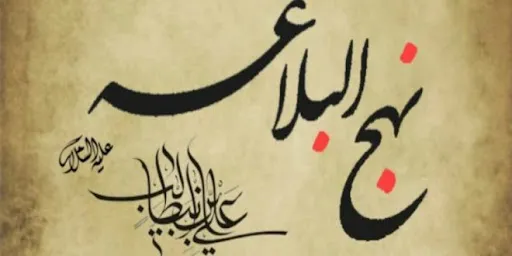 نهج البلاغه
علي بن ابيطالب
عليه السلام